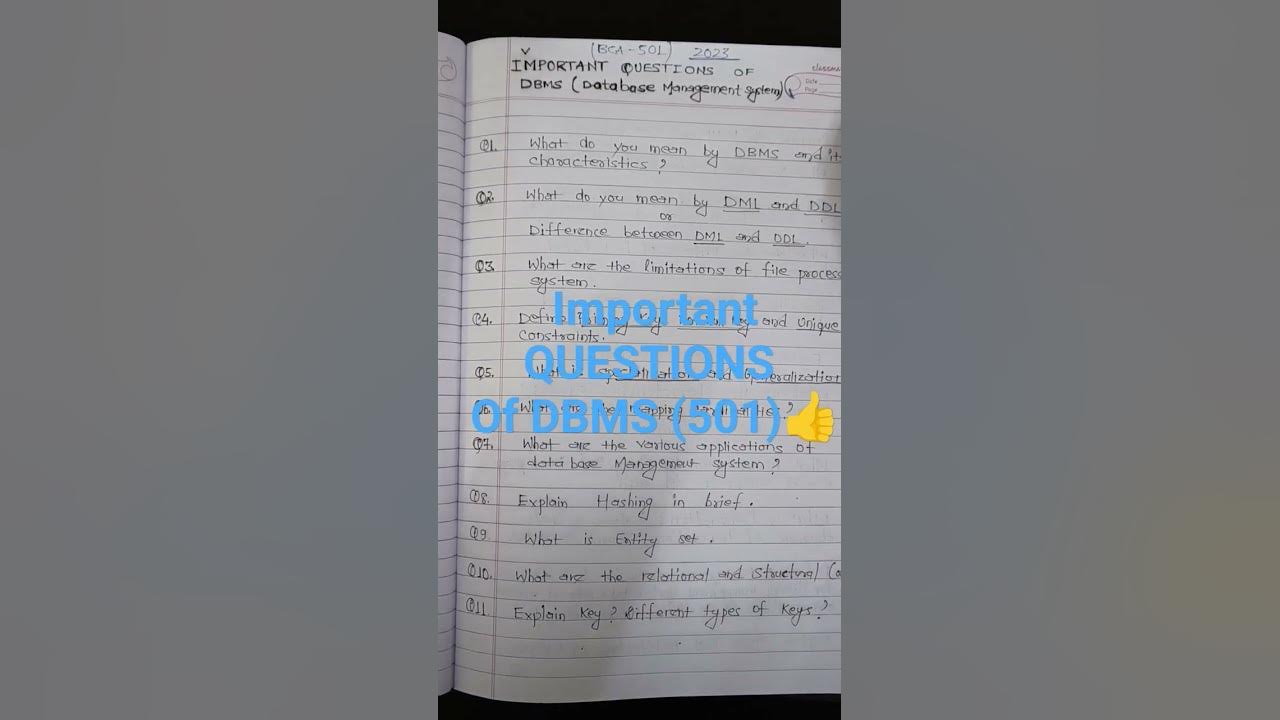 (BCA-501) 2023
IMPORTANT QUESTIONS OF
DBMS (Database Management System)
classma
Date
Page
Q1. What do you mean by DBMS and it
characteristics ?
Q2. What do you mean by DML and DDL
or
Difference between DML and DDL.
Q3. What are the limitations of file process
system.
Q4. Define Primary key and Unique
constraints.
Q5. What is and Generalization
Q6. What are the mapping ?
Q7. What are the various applications of
database Management system ?
Q8. Explain Hashing in brief.
Q9 What is Entity set.
Q10. What are the relational and structural
Q11 Explain Key? Different types of Keys?
Important
QUESTIONS
Of DBMS (501)👍